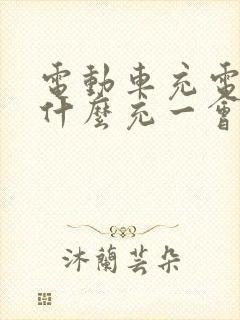 電動車充電
什麼充一會
沐蘭芸朵